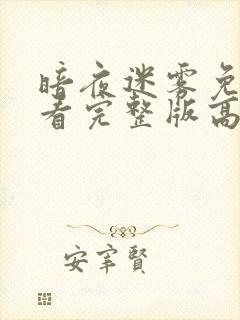 暗夜迷雾免
看完整版高
安宰贤